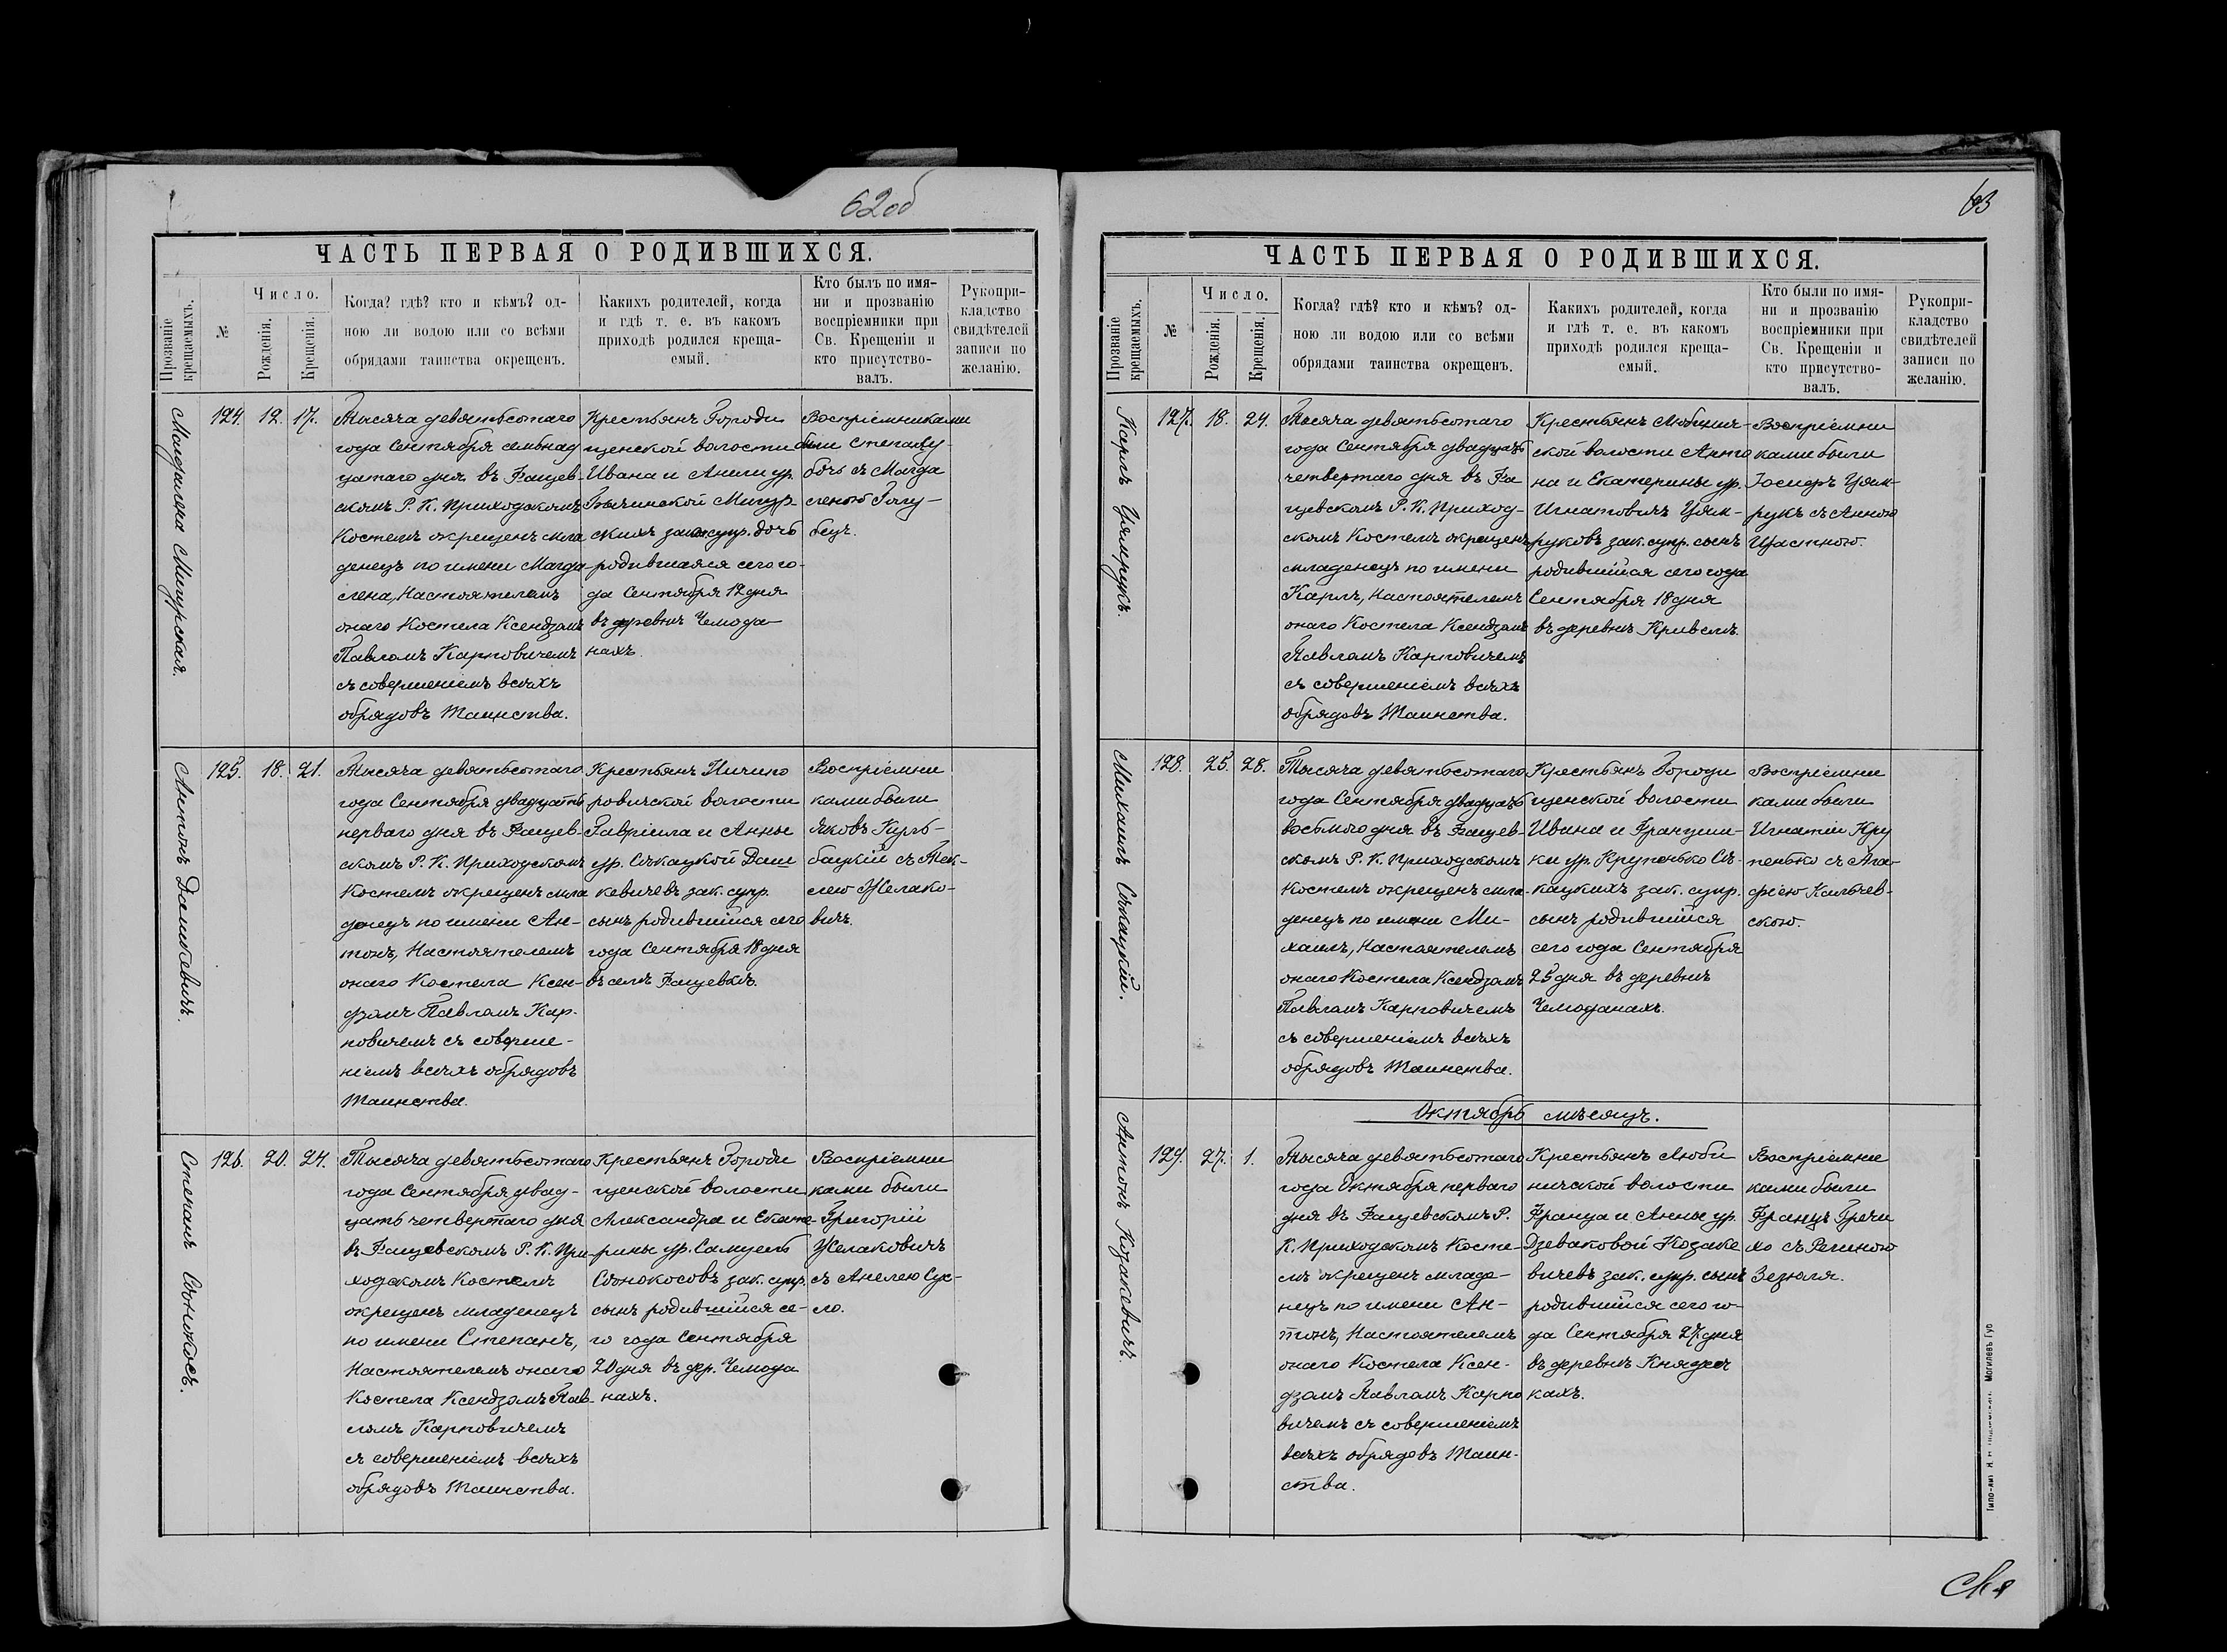 62об
ЧАСТЬ ПЕРВАЯ О РОДИВШИХСЯ.
Прозваніе
крещаемыхъ.
№
Число.
Рожденія.
Крещенія.
Когда? гдѣ? кто и кѣмъ? од-
ною ли водою или со всѣми
обрядами таинства окрещенъ.
Какихъ родителей, когда
и гдѣ т. е. въ какомъ
приходѣ родился креща-
емый.
Кто былъ по имя-
ни и прозванію
воспріемники при
Св. Крещеніи и
кто присутство-
валъ.
Рукопри-
кладство
свидѣтелей
записи по
желанію.
Магдалена Мигурская.
124. 12. 17.
Тысяча девятьсотаго
года Сентября семьнад
цатаго дня въ Фащев-
скомъ Р. К. Приходскомъ
Костелѣ окрещенъ мла
денецъ по имени Магда-
лена, Настоятелемъ
онаго Костела Ксендзомъ
Павломъ Карповичемъ
съ совершеніемъ всѣхъ
обрядовъ Таинства.
Крестьянъ Городи
щенской волости
Ивана и Анели ур.
Мигур-
скихъ зак. супр. дочь
родившаяся сего го-
да Сентября 12 дня
въ деревнѣ Чемода
нахъ.
Воспріемниками
были Степану
бочь съ Магда
леною Голу-
бецъ.
Антонъ Дашкевичъ.
125. 18. 21.
Тысяча девятьсотаго
года Сентября двадцать
перваго дня въ Фащев-
скомъ Р. К. Приходскомъ
Костелѣ окрещенъ мла
денецъ по имени Ан-
тонъ, Настоятелемъ
онаго Костела Ксен-
дзомъ Павломъ Кар-
повичемъ съ соверше-
ніемъ всѣхъ обрядовъ
Таинства.
Крестьянъ Пичипо
ровичской волости
Гавріила и Анны
ур. Сѣкацкой Даш
кевичевъ зак. супр.
сынъ родившійся сего
года Сентября 18 дня
въ селѣ Фащевкѣ.
Воспріемни
ками были
Яковъ Кунь-
бацкій съ Тек-
лею Желако-
вичъ.
Степанъ Сѣнокосъ.
126. 20. 24.
Тысяча девятьсотаго
года Сентября двад-
цать четвертаго дня
въ Фащевскомъ Р. К. При-
ходскомъ Костелѣ
окрещенъ младенецъ
по имени Степанъ,
Настоятелемъ онаго
Костела Ксендзомъ Пав-
ломъ Карповичемъ
съ совершеніемъ всѣхъ
обрядовъ Таинства.
Крестьянъ Городи
щенской волости
Александра и Екате-
рины ур. Самусь
Сѣнокосовъ зак. супр.
сынъ родившійся се-
го года Сентября
20 дня въ дер. Чемода
нахъ.
Воспріемни
ками были
Григорій
Желаковичъ
съ Анелею Сус-
ло.
63
ЧАСТЬ ПЕРВАЯ О РОДИВШИХСЯ.
Прозваніе
крещаемыхъ.
№
Число.
Рожденія.
Крещенія.
Когда? гдѣ? кто и кѣмъ? од-
ною ли водою или со всѣми
обрядами таинства окрещенъ.
Какихъ родителей, когда
и гдѣ т. е. въ какомъ
приходѣ родился креща-
емый.
Кто были по имя-
ни и прозванію
воспріемники при
Св. Крещеніи и
кто присутство-
валъ.
Рукопри-
кладство
свидѣтелей
записи по
желанію.
Карлъ Цямрукъ.
127. 18. 24.
Тысяча девятьсотаго
года Сентября двадцать
четвертаго дня въ Фа
щевскомъ Р. К. Приход-
скомъ Костелѣ окрещенъ
младенецъ по имени
Карлъ, Настоятелемъ
онаго Костела Ксендзомъ
Павломъ Карповичемъ
съ совершеніемъ всѣхъ
обрядовъ Таинства.
Крестьянъ Любинич-
ской волости Анто
на и Екатерины ур.
Игнатовичъ Цям-
руковъ зак. супр. сынъ
родившійся сего года
Сентября 18 дня
въ деревнѣ Кривелѣ.
Воспріемни
ками были
Іосифъ Цям-
рукъ съ Анною
Щастною.
Михаилъ Сѣкацкій.
128. 25. 28.
Тысяча девятьсотаго
года Сентября двадцать
восьмого дня въ Фащев-
скомъ Р. К. Приходскомъ
Костелѣ окрещенъ мла-
денецъ по имени Ми-
хаилъ, Настоятелемъ
онаго Костела Ксендзомъ
Павломъ Карповичемъ
съ совершеніемъ всѣхъ
обрядовъ Таинства.
Крестьянъ Городи
щенской волости
Ивана и Францишн-
ки ур. Крупенько Сѣ-
кацкихъ зак. супр.
сынъ родившійся
сего года Сентября
25 дня въ деревнѣ
Чемоданахъ.
Воспріемни
ками были
Игнатій Кру
пенько съ Ага-
фіею Кильчев-
скою.
Октябрь мѣсяцъ.
Антонъ Козакевичъ.
129. 27. 1.
Тысяча девятьсотаго
года Октября перваго
дня въ Фащевскомъ Р.
К. Приходскомъ Косте-
лѣ окрещенъ младе-
нецъ по имени Ан-
тонъ, Настоятелемъ
онаго Костела Ксен-
дзомъ Павломъ Карпо
вичемъ съ совершеніемъ
всѣхъ обрядовъ Таин-
ства.
Крестьянъ Люби
ничской волости
Франца и Анны ур.
Дзеваковой Козаке
вичевъ зак. супр. сынъ
родившійся сего го-
да Сентября 27 дня
въ деревнѣ Княжи
кахъ.
Воспріемни
ками были
Францъ Гречи
хо съ Региною
Зезюля.
Могилевъ Губ